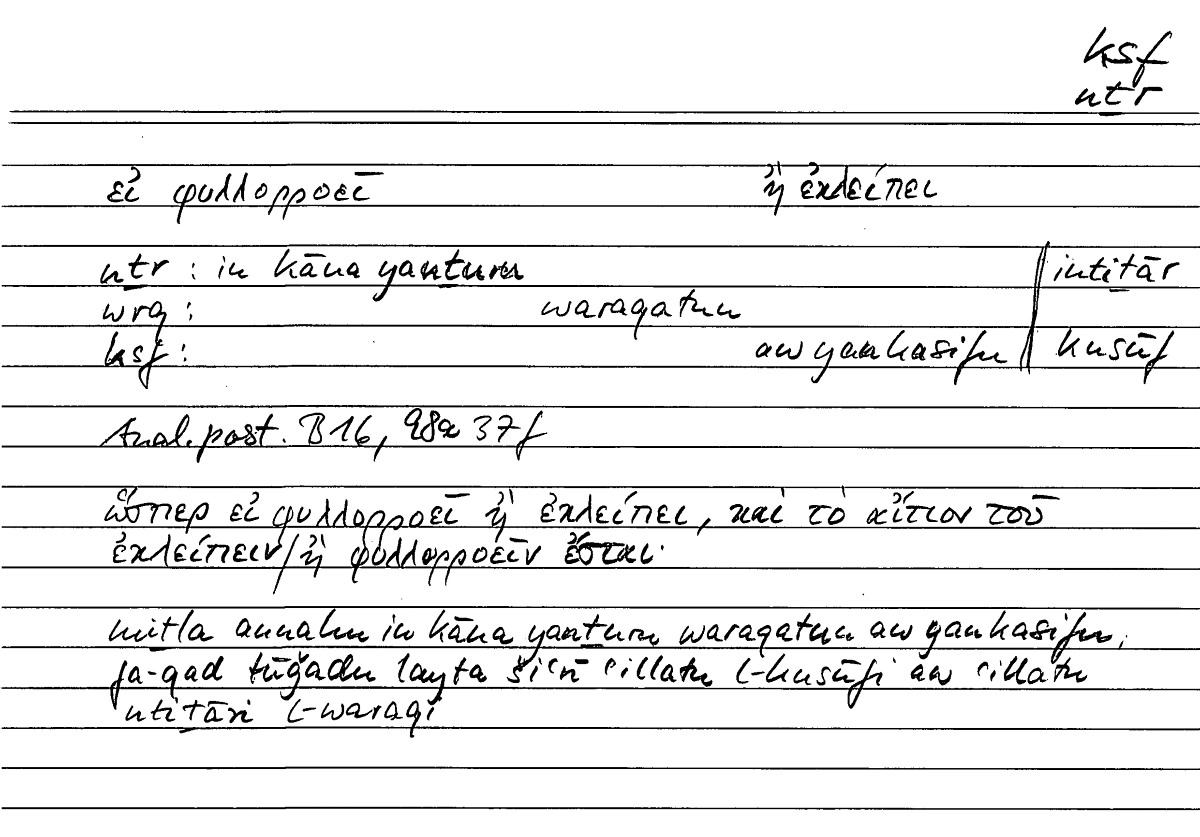 ksf
nṯr
εἰ φυλλορροεῖ ἢ ἐκλείπει
nṯr : in kāna yanṯuru intiṯār
wrq : waraqatun
ksf : aw yankasifu kusūf
Anal. post. B 16, 98a 37 f
ὥσπερ εἰ φυλλορροεῖ ἢ ἐκλείπει, καὶ τὸ αἴτιον τοῦ
ἐκλείπειν/ἢ φυλλορροεῖν ἔσται·
miṯla annahu in kāna yanṯuru waraqatun aw yankasifu,
fa-qad tūǧadu layta šiʿrī ʿillatu l-kusūfi aw ʿillatu
ntiṯāri l-waraqi